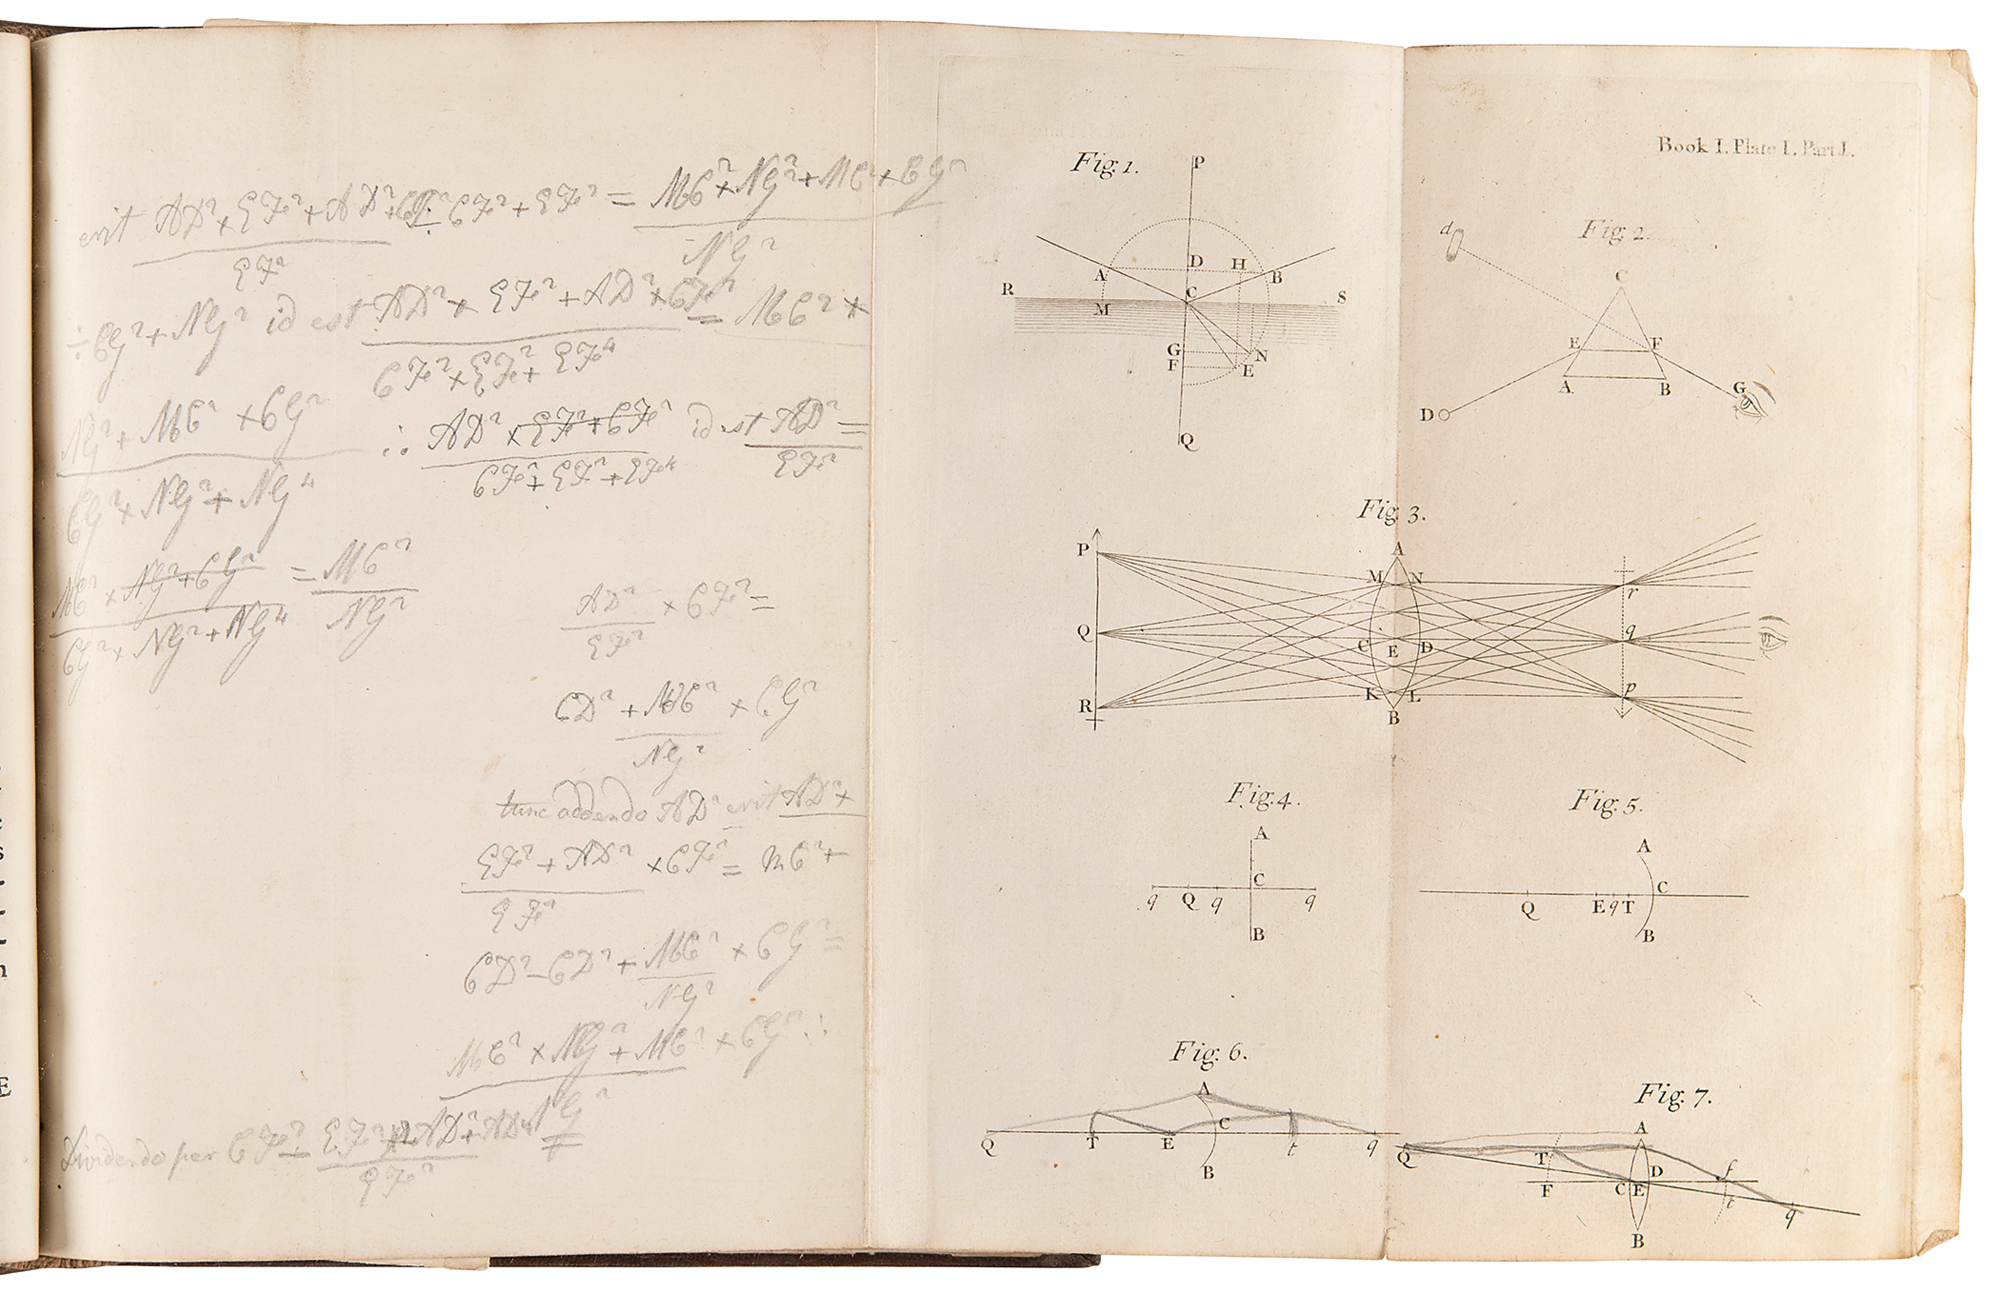 erit AD² × EF² + AD² × CF² ÷ CF² + EF² = MC² × NG² + MC² × CG²
EF²
NG²
÷ CG² + NG² id est AD² × EF² + AD² × CF² = MC² ×
CF² × EF² + EF⁴
NG² + MC² × CG²
CG² × NG² + NG⁴
∴ AD² × EF² + CF² id est AD² =
CF² + EF² + EF⁴
EF²
MC² × NG² + CG² = MC²
CG² × NG² + NG⁴
NG²
AD² × CF² =
EF²
CD² + MC² × CG²
NG²
tunc addendo AD² erit AD² ×
EF² + AD² × CF² = MC² +
EF²
CD² − CD² + MC² × CG² =
NG²
MC² × NG² + MC² × CG² ∴
NG²
Dividendo per CF²
EF²
E
Book I. Plate I. Part I.
Fig. 1.
P
A
D
H
B
R
C
S
M
G
N
F
E
Q
Fig. 2.
d
C
E
F
A
B
D
G
Fig. 3.
P
A
M
N
r
Q
C
E
D
q
R
K
L
p
B
Fig. 4.
A
C
q
Q
q
q
B
Fig. 5.
A
C
Q
E
q
T
B
Fig. 6.
A
C
Q
T
E
t
q
B
Fig. 7.
A
Q
T
D
f
F
C
E
t
q
B